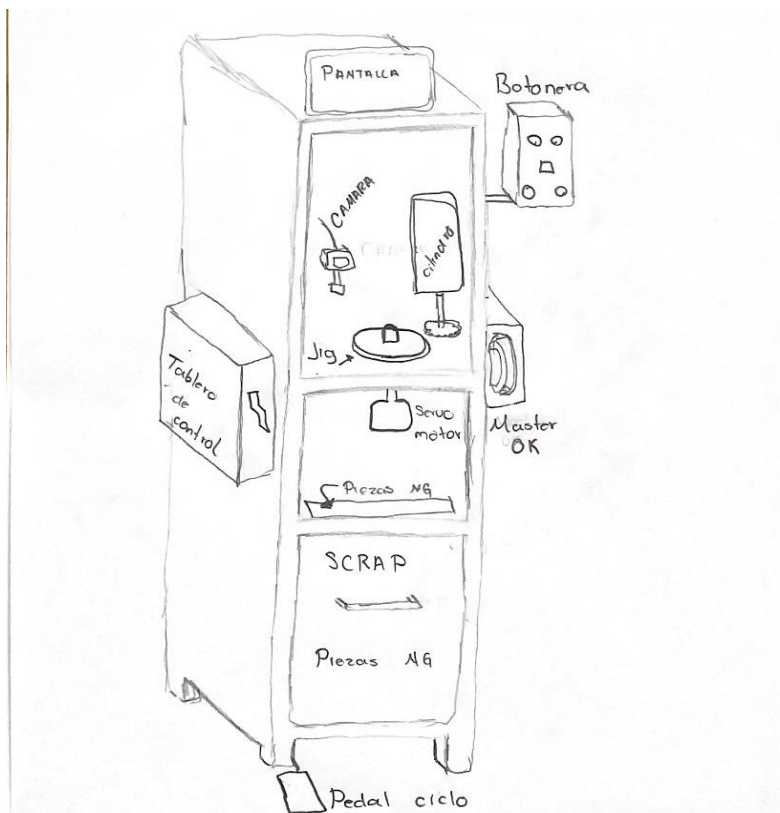 PANTALLA
Botonera
CAMARA
cilindro
Jig
Tablero
de
control
Servo
motor
Master
OK
Piezas NG
SCRAP
Piezas NG
Pedal ciclo